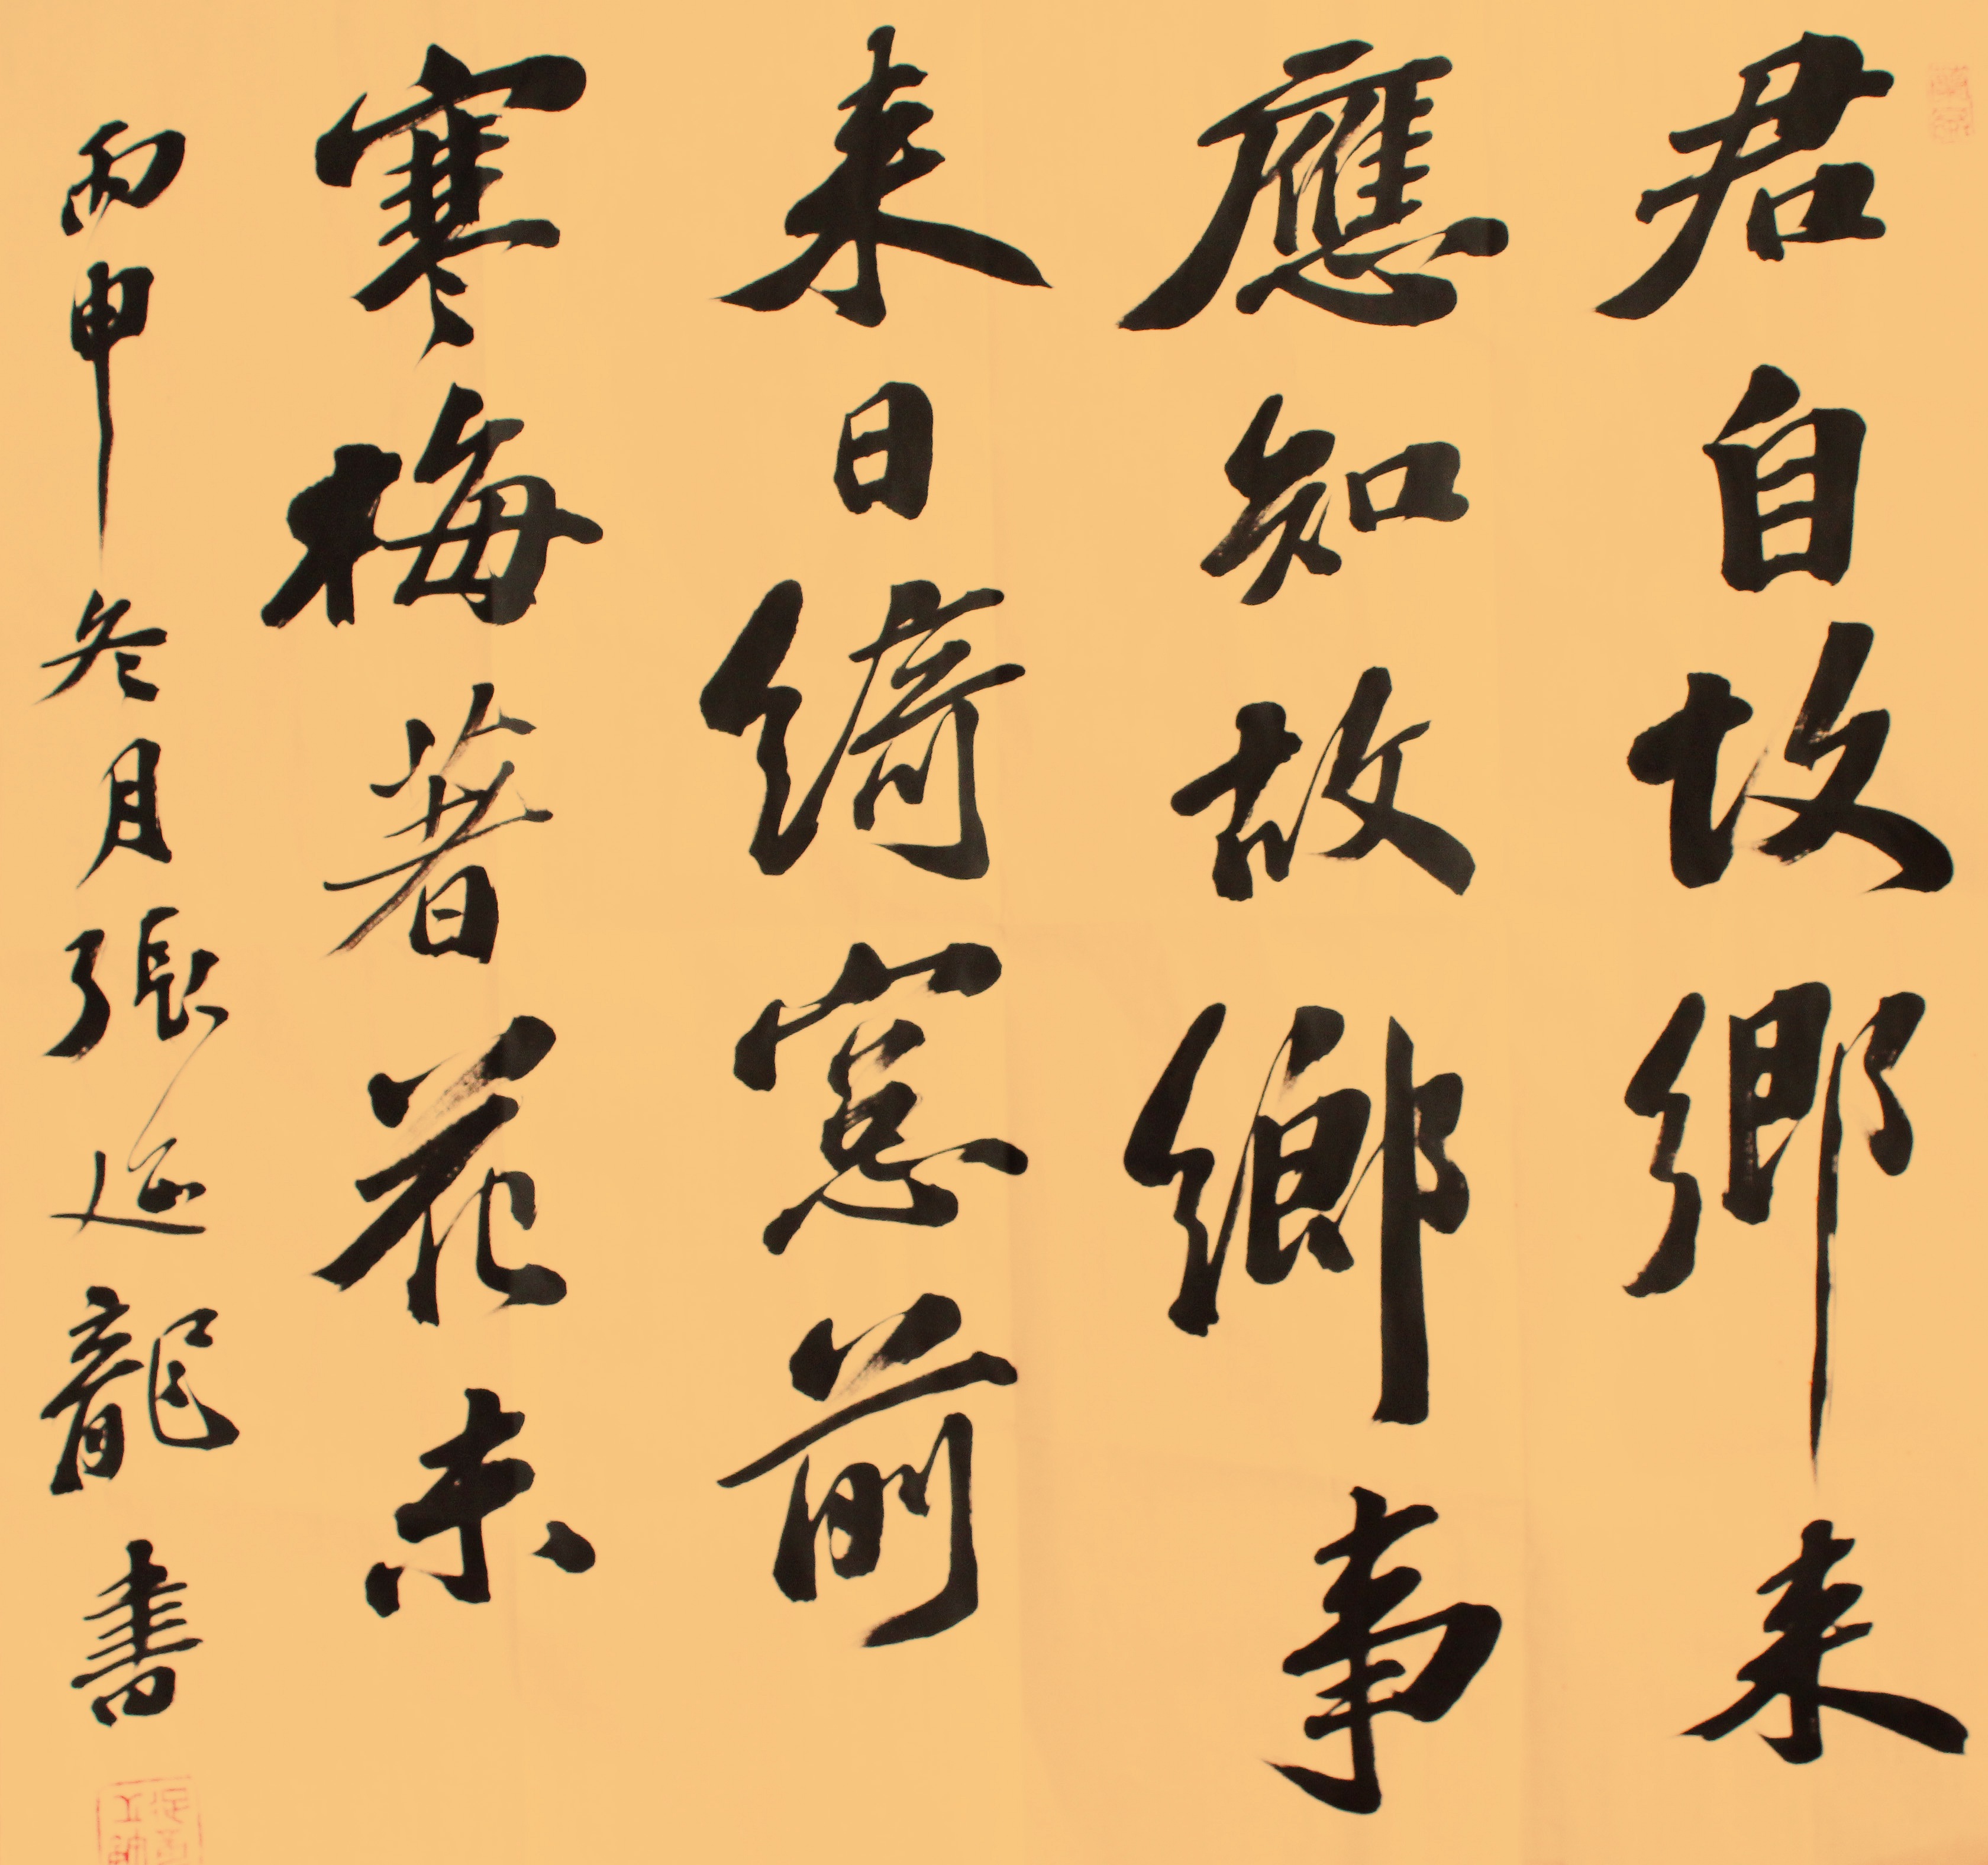 君自故鄉来
應知故鄉事
来日綺窓前
寒梅著花未
丙申冬月張延龍書